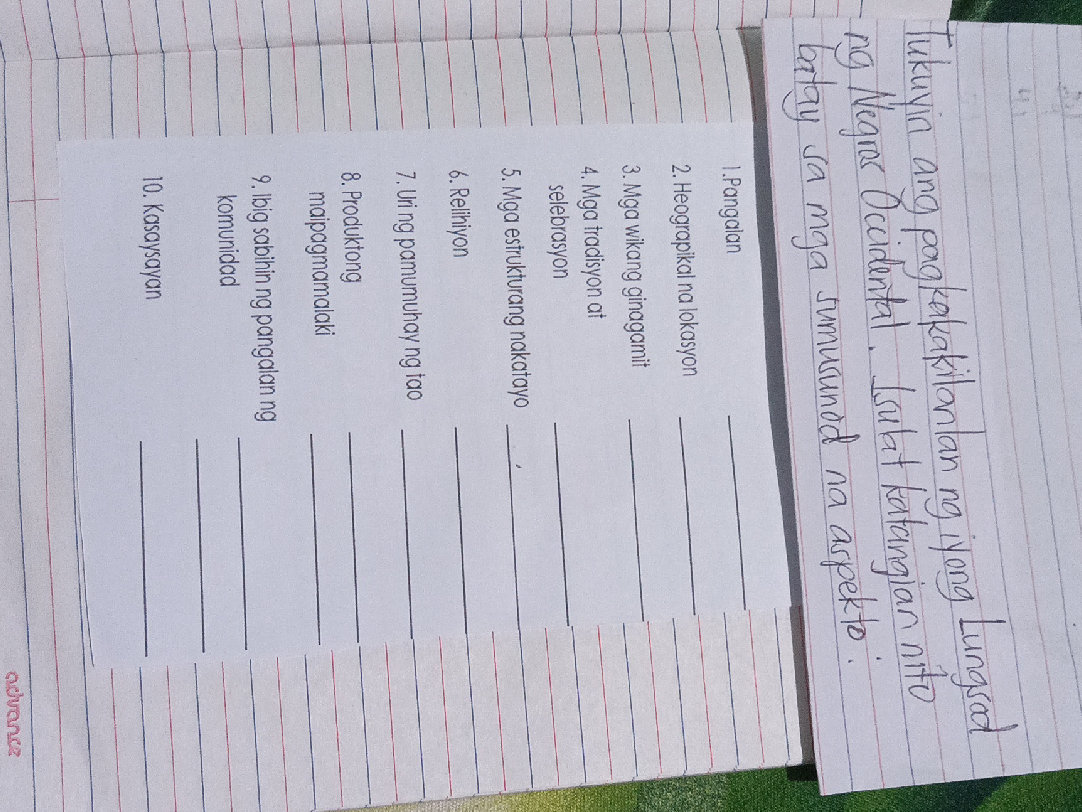 Tukuyin ang pagkakakilanlan ng iyong Lungsod
ng Negros Occidental. Isulat katangian nito
batay sa mga sumusunod na aspekto.
1.Pangalan
2. Heograpikal na lokasyon
3. Mga wikang ginagamit
4. Mga tradisyon at
selebrasyon
5. Mga estrukturang nakatayo
6. Relihiyon
7. Uri ng pamumuhay ng tao
8. Produktong
maipagmamalaki
9. Ibig sabihin ng pangalan ng
komunidad
10. Kasaysayan
advance